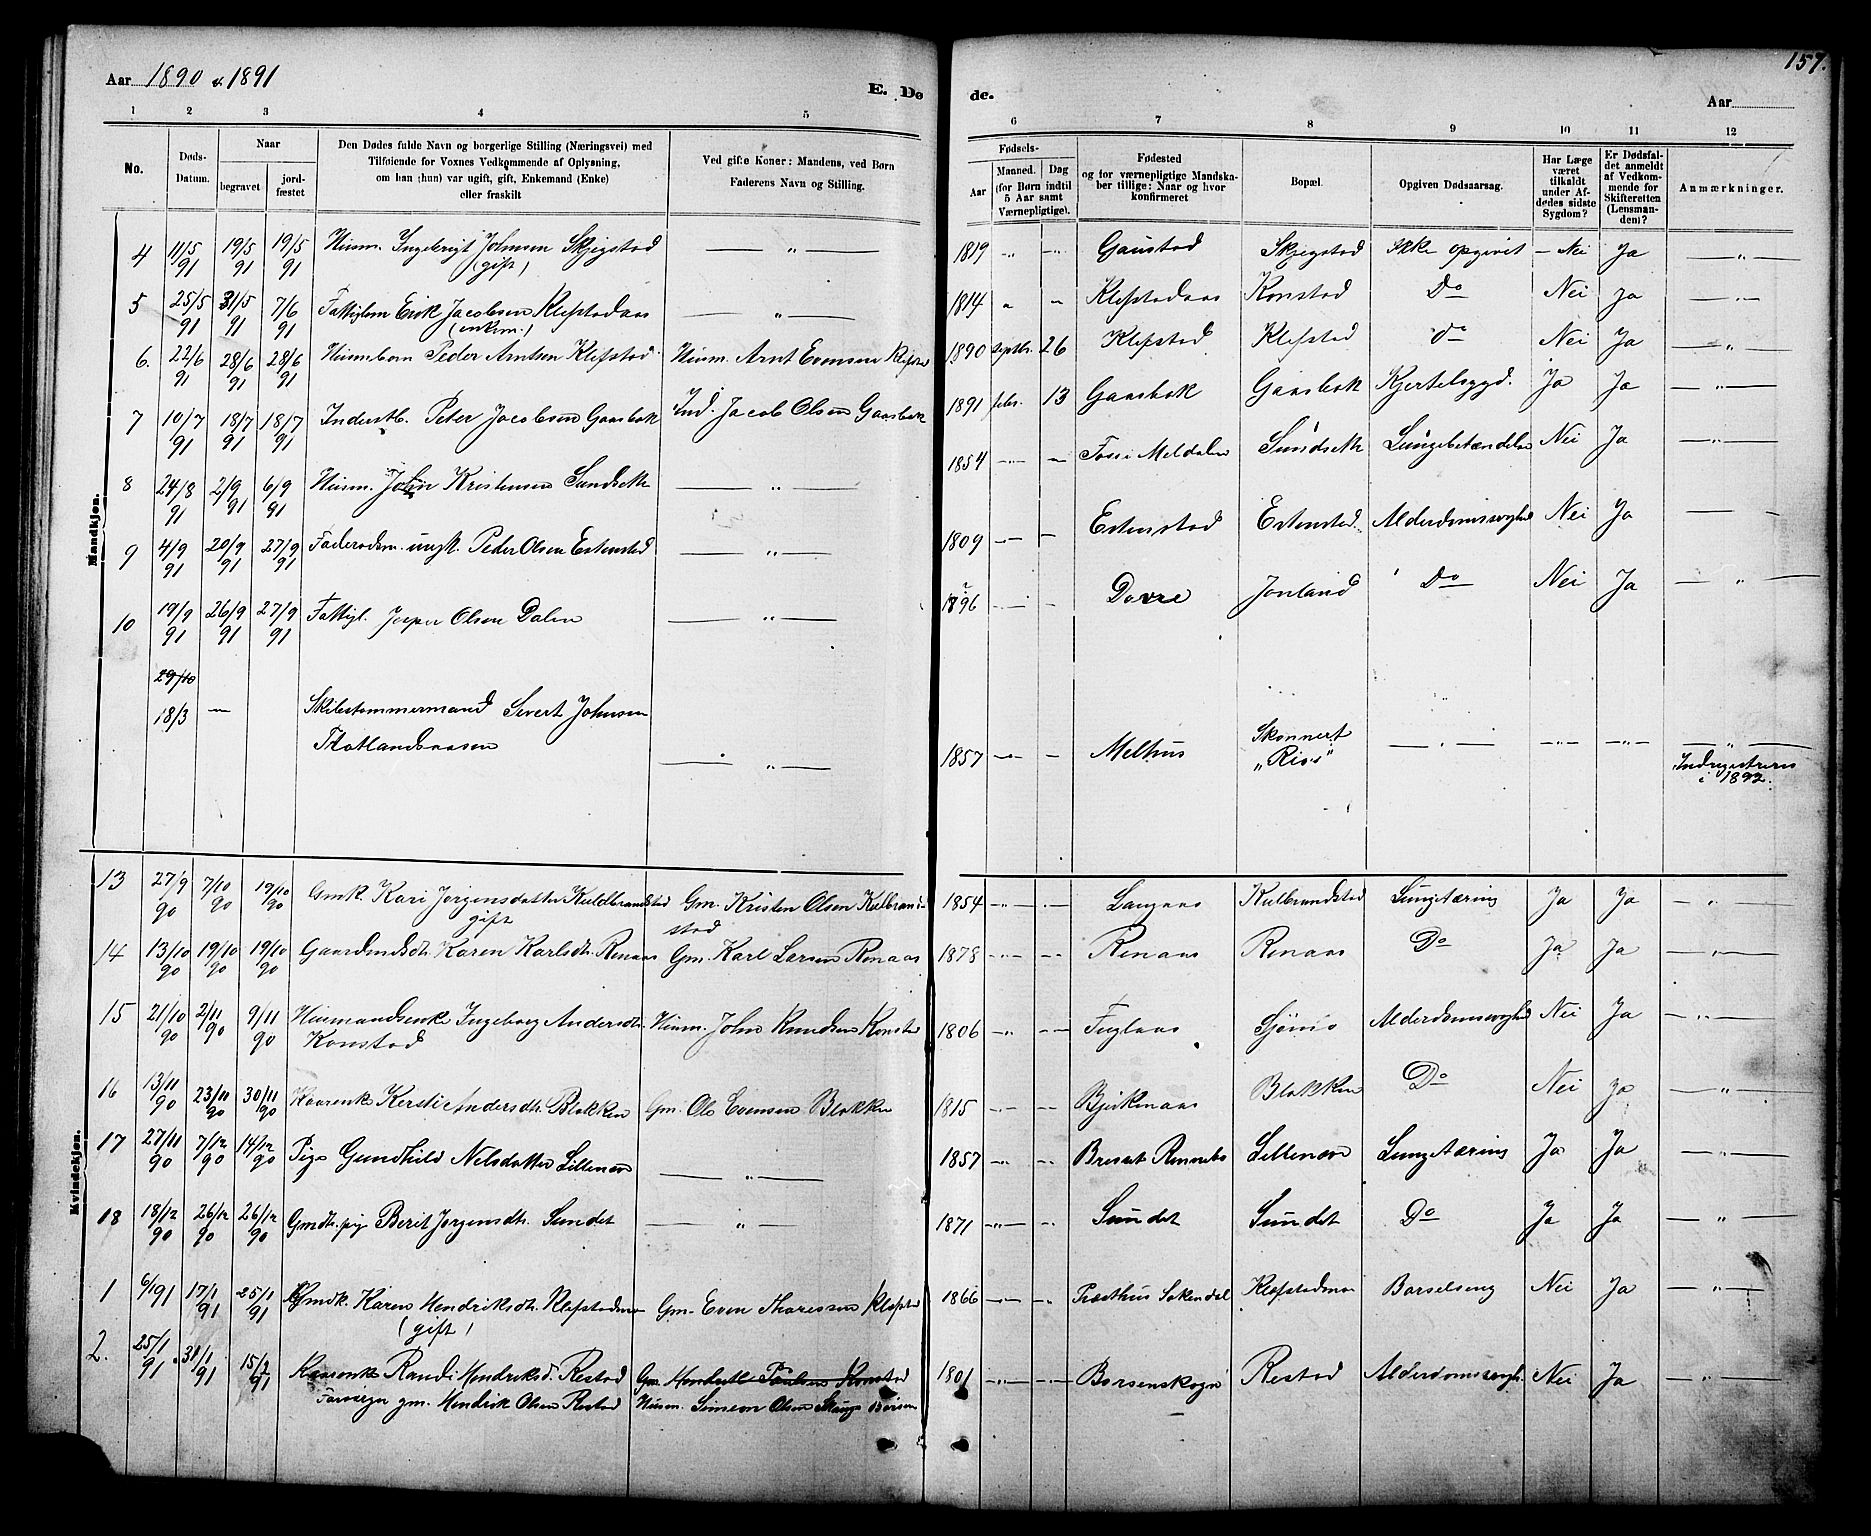 Aar 1890 & 1891
E. Dø
de.
157.
Aar
1 2 3 4 5 6 7 8 9 10 11 12
No.
Døds-Datum.
Naar
begravet
jordfæstet
Den Dødes fulde Navn og borgerlige Stilling (Næringsvei) med
Tilføiende for Voxnes Vedkommende af Oplysning,
om han (hun) var ugift, gift, Enkemand (Enke)
eller fraskilt
Ved gifte Koner: Mandens, ved Børn
Faderens Navn og Stilling.
Fødsels-
Aar
Maaned.
Dag
(for Børn indtil 5 Aar samt Værnepligtige).
Fødested
og for værnepligtige Mandskaber tillige: Naar og hvor konfirmeret
Bopæl.
Opgiven Dødsaarsag.
Har Læge været tilkaldt under Afdødes sidste Sygdom?
Er Dødsfaldet anmeldt af Vedkommende for Skifteretten (Lensmanden)?
Anmærkninger.
Mandkjøn.
4 11/5 91 19/5 91 19/5 91 Husm. Ingebrigt Johnsen Skjegstad (gift) — „ — 1819 Gaustad Skjegstad Ikke opgivet Nei Ja — „ —
5 25/5 91 31/5 91 7/6 91 Fattiglem Erik Jacobsen Klefstadaas (enkem.) — „ — 1814 Klefstadaas Konstad Do Nei Ja — „ —
6. 22/6 91 28/6 91 28/6 91 Husmebarn Peder Arntsen Klefstad Husm. Arnt Evensen Klefstad 1890 Septbr. 26 Klefstad Klefstad do Nei Ja — „ —
7 10/7 91 18/7 91 18/7 91 Inderstb. Peter Jacobsen Gaasbak Ind. Jacob Olsen Gaasbak 1891 febr. 13 Gaasbak Gaasbak Kjertelsygd. Ja Ja — „ —
8 24/8 91 2/9 91 6/9 91 Husm. John Kristensen Sundseth — „ — 1854 Foss i Meldalen Sundseth Lungebetændelse Nei Ja — „ —
9 4/9 91 20/9 91 27/9 91 Føderadsm. ungk. Peder Olsen Estenstad — „ — 1809 Estenstad Estenstad Alderdomssvaghed Nei Ja
10 19/9 91 26/9 91 27/9 91 Fattigl. Jesper Olsen Dalen — „ — 1796 Dovre Jonland Do Nei Ja — „ —
29/10
18/3 — Skibstømmermand Sivert Johnsen
Flatlandsaasen — „ — 1857 Melhus Skonnert „Rios“ — „ — Indregistreres i 1892.
Kvindekjøn.
13 27/9 90 7/10 90 19/10 90 Gmk. Kari Jørgensdatter Kuldbrandstad gift Gm. Kristen Olsen Kulbrandstad 1854 Langaas Kulbrandstad Lungetæring Ja Ja — „ —
14 13/10 90 19/10 90 19/10 90 Gaardmdsdtr. Karen Karlsdtr. Renaas Gm. Karl Larsen Renaas 1878 Renaas Renaas Do Ja Ja — „ —
15 21/10 90 2/11 90 9/11 90 Husmandsenke Ingeborg Andersdtr. Konstad Husm. John Knudsen Konstad 1806 Fuglaas Sjømo Alderdomssvaghed Nei Ja — „ —
16 13/11 90 23/11 90 30/11 90 Kaarenke Kersti Andersdtr. Blokken Gm. Ole Evensen Blokken 1815 Bjerkenaas Blokken Do Nei Ja — „ —
17 27/11 90 7/12 90 14/12 90 Pige Gundhild Nilsdatter Lillemo — „ — 1857 Lillemo Lungetæring Ja Ja — „ —
18 18/12 90 26/12 90 26/12 90 Gmdtr. pige Berit Jørgensdtr. Sundet — „ — 1871 Sundet Sundet Do Ja Ja — „ —
1 6/1 91 17/1 91 25/1 91 Gmdk. Karen Hendriksdtr. Klefstadmo (gift) Gm. Even Tharessen Klefstad 1866 Præsthus Soknedal Klefstadmo Barselseng Nei Ja — „ —
2. 25/1 91 31/1 91 Kaarenke Randi Hendriksd. Restad Gm. Hendrik Paulsen Konstad 1801 Børsenskogn Restad Alderdomssvagh. Nei Ja — „ —
gm. Hendrik Olsen Restad Husm. Simeon Olsen Skaug Børsen